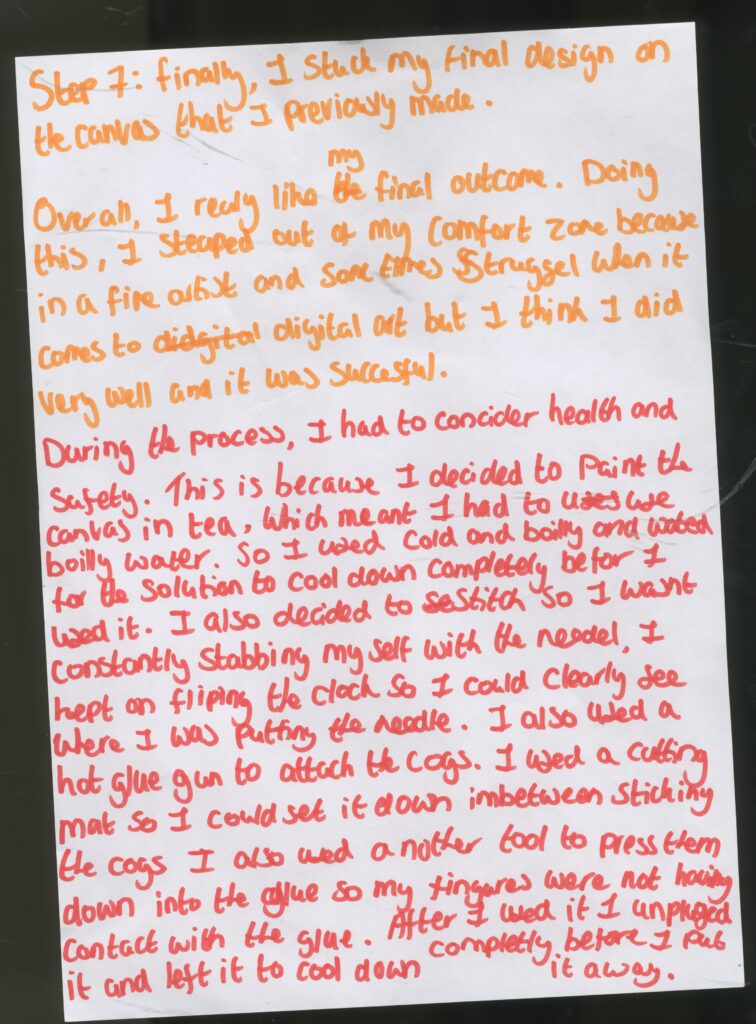 Step 7: finally, I stuck my final design on
the canvas that I previously made.
my
Overall, I realy like the final outcome. Doing
this, I steaped out of my comfort zone because
in a fine artist and sometimes Struggel when it
comes to didgital digital art but I think I did
very well and it was succesful.
During the process, I had to concider health and
safety. This is because I decided to paint the
canvas in tea, which meant I had to uses use
boilly water. So I used cold and boilly and waited
for the solution to cool down completely befor I
used it. I also decided to se stitch so I wasnt
constantly stabbing my self with the needel, I
kept on fliping the clock so I could clearly see
where I was putting the needle. I also used a
hot glue gun to attach the cogs. I used a cutting
mat so I could set it down imbetween sticking
the cogs I also used another tool to press them
down into the glue so my fingures were not having
contact with the glue. After I used it I unpluged
it and left it to cool down completely before I put
it away.